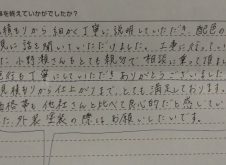 事を終えていかがでしたか？
見積もりから細かく丁寧に説明していただき、配色の
に話を聞いていただけました。工事に行ってい
た、小野様さんもとても親切で相談に乗って頂き
丁寧にしていただきありがとうございました
仕上がりまで、とても満足しております。
価格帯も他社さんと比べて良心的だと感じてい
た。外装塗装の際はお願いしたいです。